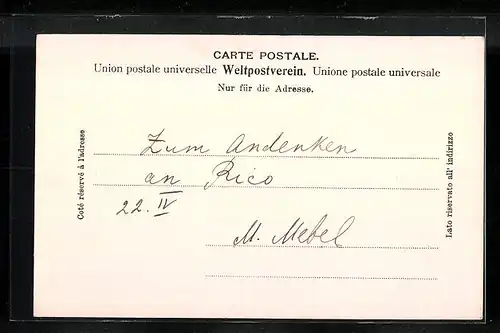 CARTE POSTALE.
Union postale universelle Weltpostverein. Unione postale universale
Nur für die Adresse.
Coté réservé à l'adresse
Lato riservato all' indirizzo
Zum Andenken
an Rico
22. IV
M. Mebel